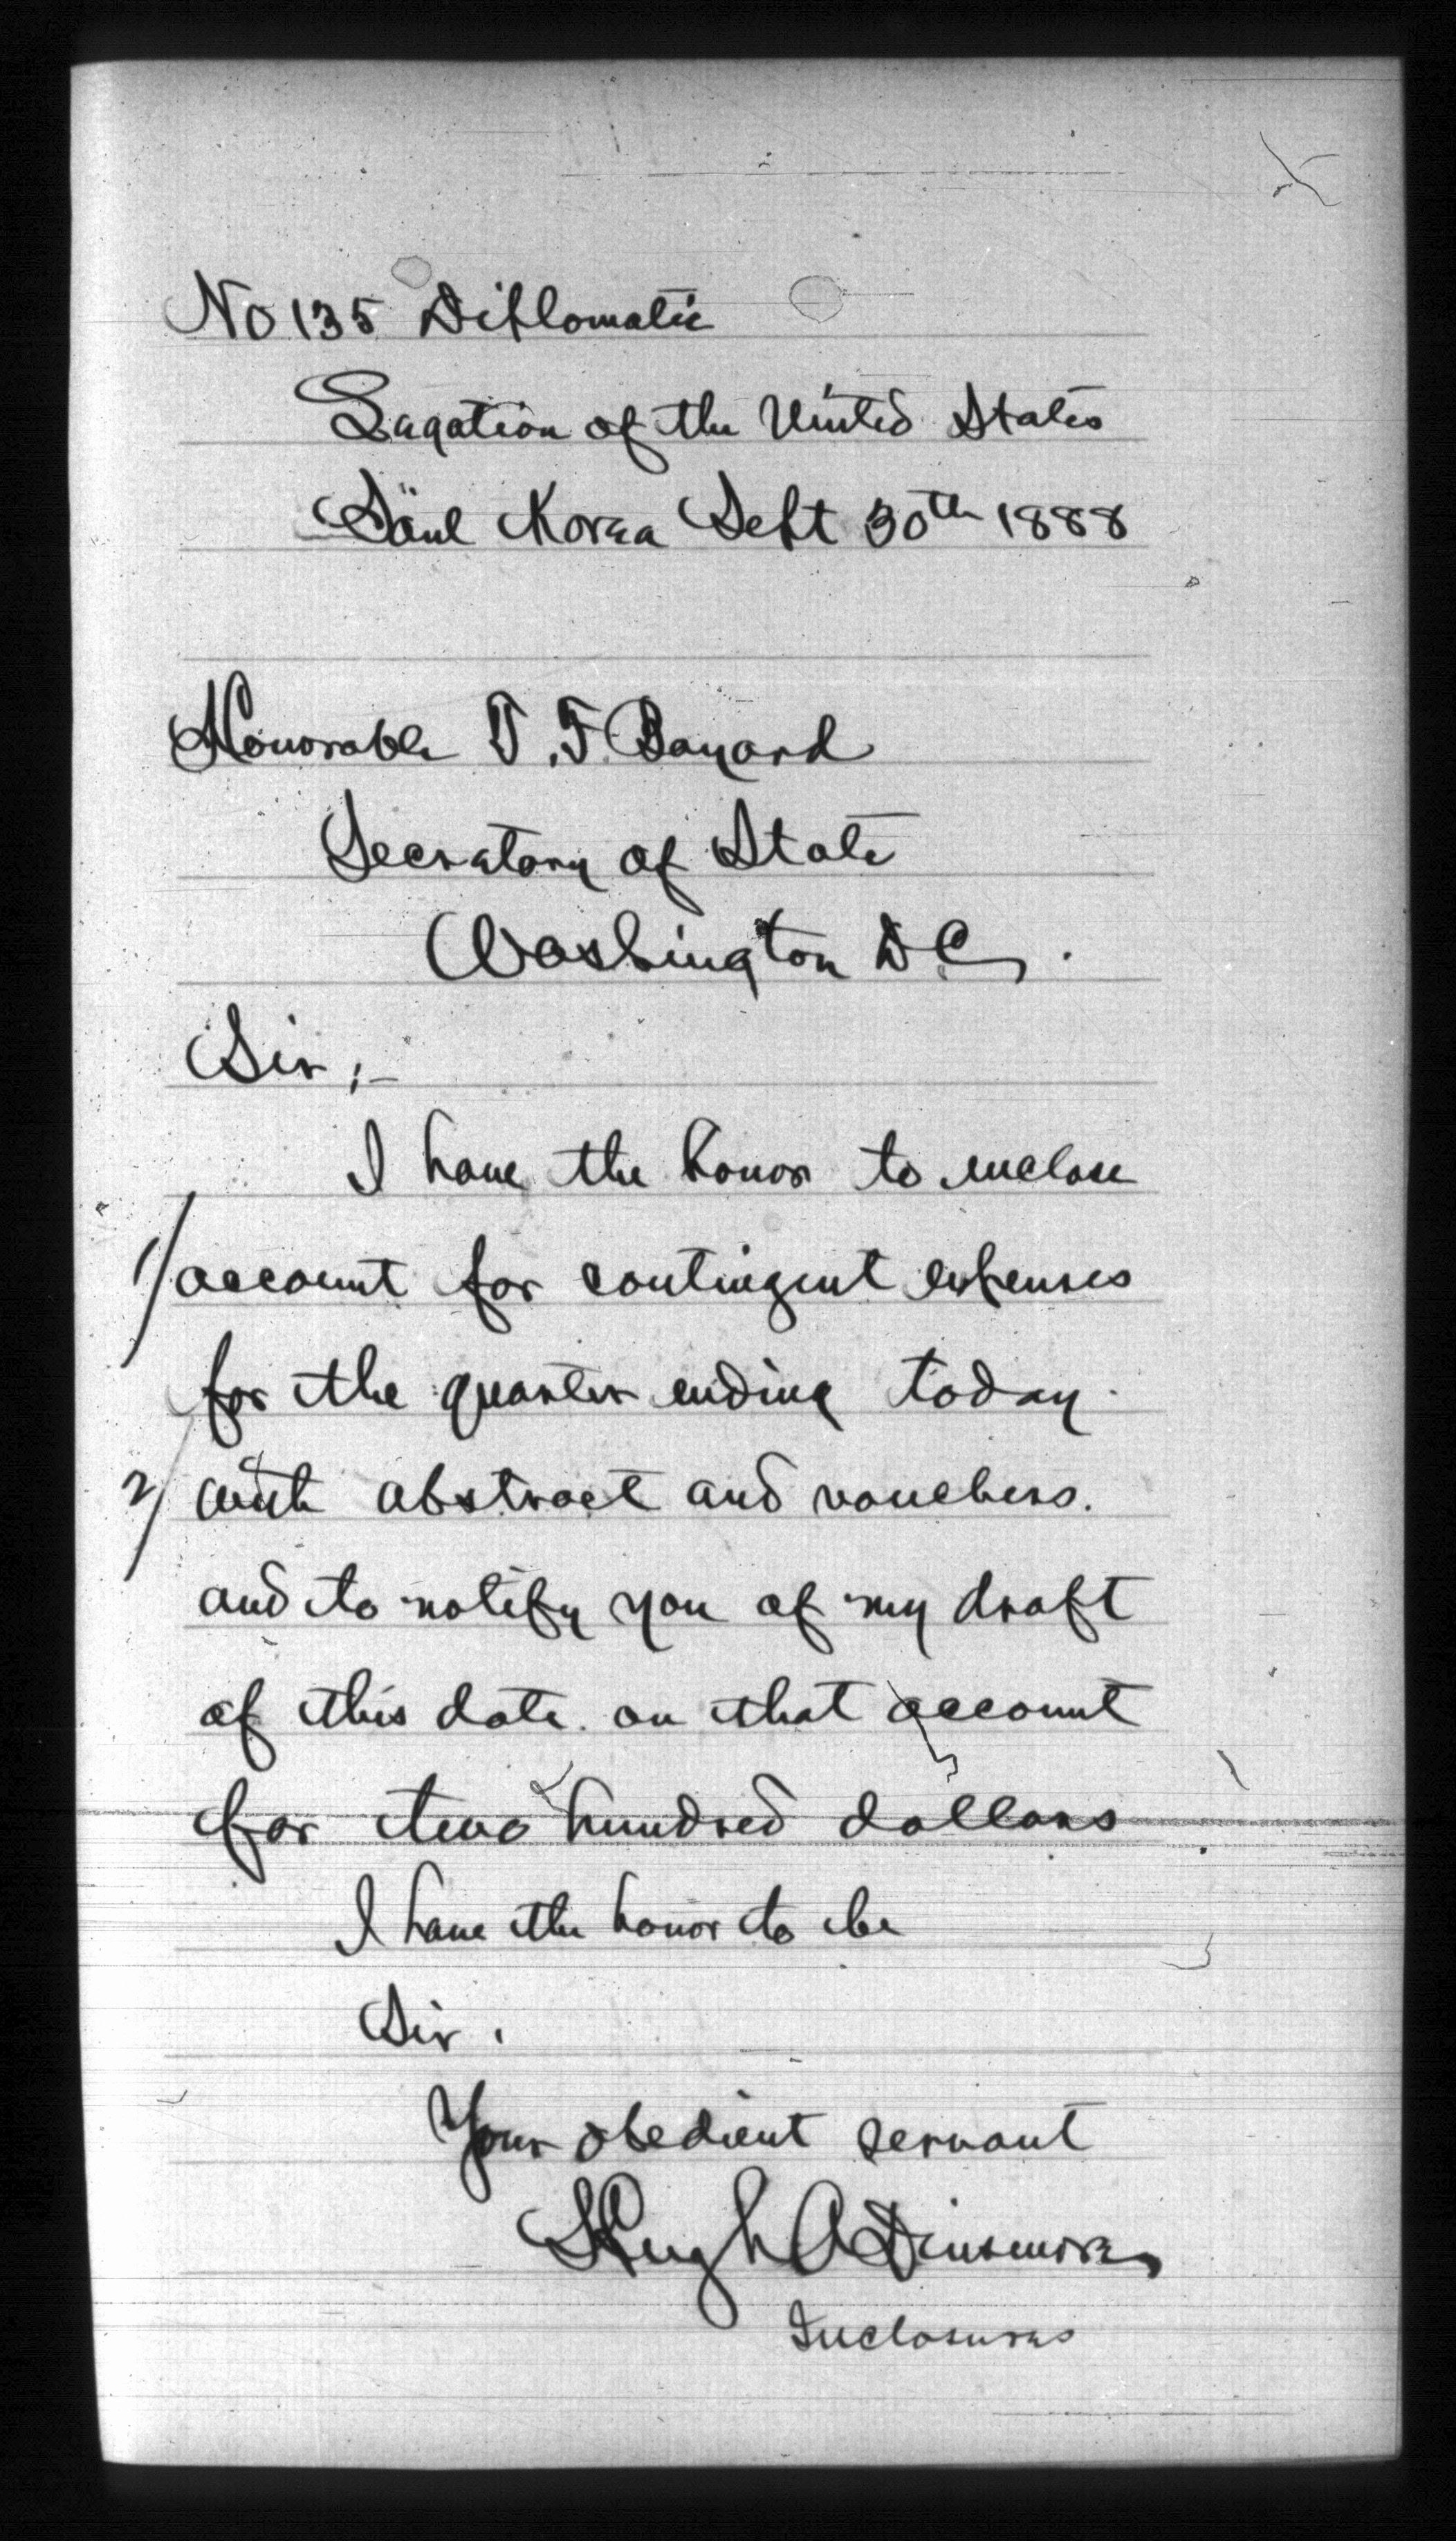 No 135 Diplomatic
Legation of the United States
Söul Korea Sept 30th 1888
Honorable T. F. Bayard
Secretary of State
Washington D.C.
Sir;-
I have the honor to enclose
1/ account for contingent expenses
for the quarter ending today.
2/ with abstract and vouchers.
and to notify you of my draft
of this date. on that account
for two hundred dollars
I have the honor to be
Sir.
Your obedient servant
Hugh A Dinsmore
Inclosures